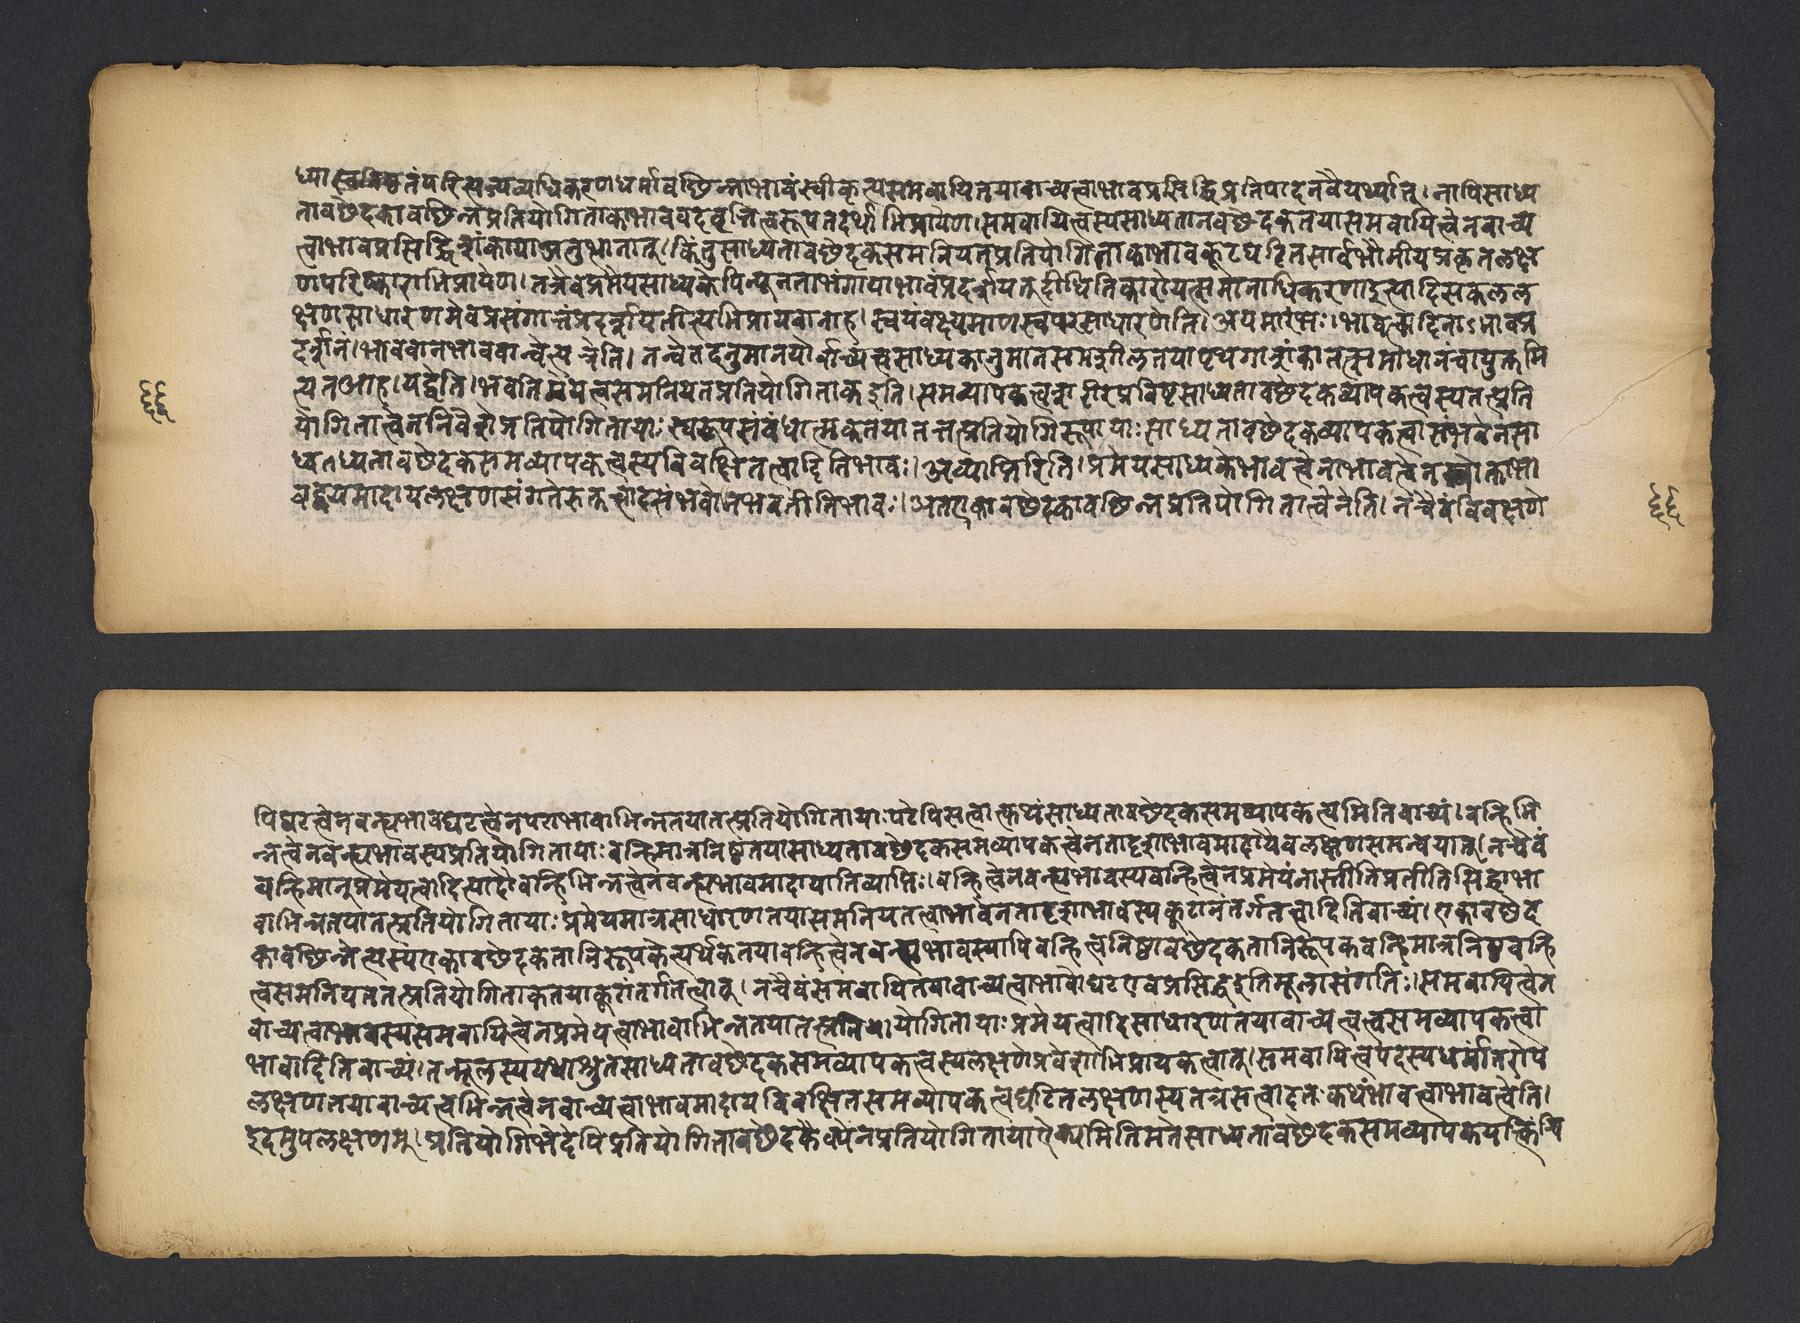 ध्या स्वनिष्ठतं परित्यज्यव्यधिकरणधर्मावछिन्नाभावंस्वीकृत्यसमवायितयावाच्यत्वाभावप्रसिद्धिप्रतिपादनवैयर्थ्यात्। नापिसाध्य
तावछेदकावछिन्नप्रतियोगिताकाभावपदवृत्तित्वरूपतदर्थाभिप्रायेण। समवायित्वस्यसाध्यतानवछेदकतयासमवायित्वेनवाच्य
त्वाभावप्रसिद्धिशंकायाअनुत्थानात्। किंतुसाध्यतावछेदकसमनियतप्रतियोगिताकाभावकूटघटितसार्वभौमीयप्रकृतलक्ष
णपरिष्काराभिप्रायेण। तत्रैवप्रमेयसाध्यकेपिन्यूनताभंगायाभावंप्रदर्शयतुदीधितिकारोयत्समानाधिकरणाइत्यादिसकलल
क्षणसाधारणमेवप्रसंगात्तंप्रदर्शयतीत्यभिप्रायवानाह। स्वयंवक्ष्यमाणस्वपरसाधारणेति। अयमारंभः। भावत्वादिनाऽभावप्र
दर्शनं। भाववानभाववान्वेत्यत्रेति। नन्वेतदनुमानयोर्वाच्यत्वसाध्यकानुमानसमशीलतयापृथगाशंकातत्समाधानंचायुक्तमि
त्यतआह। यद्वेति। भवतिप्रमेयत्वसमनियतप्रतियोगिताकइति। समव्यापकत्वशरीरप्रविष्टसाध्यतावछेदकव्यापकत्वस्यतत्प्रति
योगितात्वेननिवेशेप्रतियोगितायाःस्वरूपसंबंधात्मकतयातत्तत्प्रतियोगिरूपायाःसाध्यतावछेदकव्यापकत्वासंभवेनसा
ध्यतावछेदकसमव्यापकत्वस्यविवक्षितत्वादितिभावः। अव्याप्तिरिति। प्रमेयसाध्यकेभावत्वेनाभावत्वेन
वद्वयमादायलक्षणसंगतेरुक्तत्वादसंभवोनभवतीतिभावः। अतएकावछेदकावछिन्नप्रतियोगितात्वेनेति। नन्वेवंविवक्षणे
६६
६६
पिघटत्वेनवन्ह्यभावेघटत्वेनपटाभावाभिन्नतयातत्प्रतियोगितायाःपटेपिसत्वात्कथंसाध्यतावछेदकसमव्यापकत्वमितिवाच्यं। वन्हिभि
न्नत्वेनवन्ह्यभावस्यप्रतियोगितायाःवन्हिमात्रनिष्ठतयासाध्यतावछेदकसमव्यापकत्वेनतादृशाभावमादायैवलक्षणसमन्वयात्। नचैवं
वन्हिमान्प्रमेयत्वादित्यादौवन्हिभिन्नत्वेनवन्ह्यभावमादायातिव्याप्तिः। वन्हित्वेनवन्ह्यभावस्यवन्हित्वेनप्रमेयंनास्तीतिप्रतीतिसिद्धाभा
वाभिन्नतयातत्प्रतियोगितायाः प्रमेयमात्रसाधारणतयासमनियतत्वाभावेनतादृशाभावस्यकूटानंतर्गतत्वादितिवाच्यं। एकावछेद
कावछिन्नेत्यस्यएकावछेदकतानिरूपकेत्यर्थकतयावन्हित्वेनवन्ह्यभावस्यापिवन्हित्वनिष्ठावछेदकतानिरूपकवन्हिमात्रनिष्ठवन्हि
त्वसमनियततत्प्रतियोगिताकतयाकूटांतर्गतत्वात्। नचैवंसमवायितयावाच्यत्वाभावोघटएवप्रसिद्धइतिमूलासंगतिः। समवायित्वेन
वाच्यत्वाभावस्यसमवायित्वेनप्रमेयत्वाभावाभिन्नतयातत्प्रतियोगितायाः प्रमेयत्वादिसाधारणतयावाच्यत्वत्वसमव्यापकत्वा
भावादितिवाच्यं। तन्मूलस्ययथाश्रुतसाध्यतावछेदकसमव्यापकत्वस्यलक्षणप्रवेशाभिप्रायकत्वात्। समवायित्वपदस्यधर्मांतरोप
लक्षणतयावाच्यत्वभिन्नत्वेनवाच्यत्वाभावमादायविवक्षितसमव्यापकत्वघटितलक्षणस्यतत्रसत्वादतः कथंभावत्वाभावत्वेति।
इदमुपलक्षणम्। प्रतियोगिभेदेपिप्रतियोगितावछेदकैक्येनप्रतियोगितायाऐक्यमितिमतेसाध्यतावछेदकसमव्यापकयत्किंचि